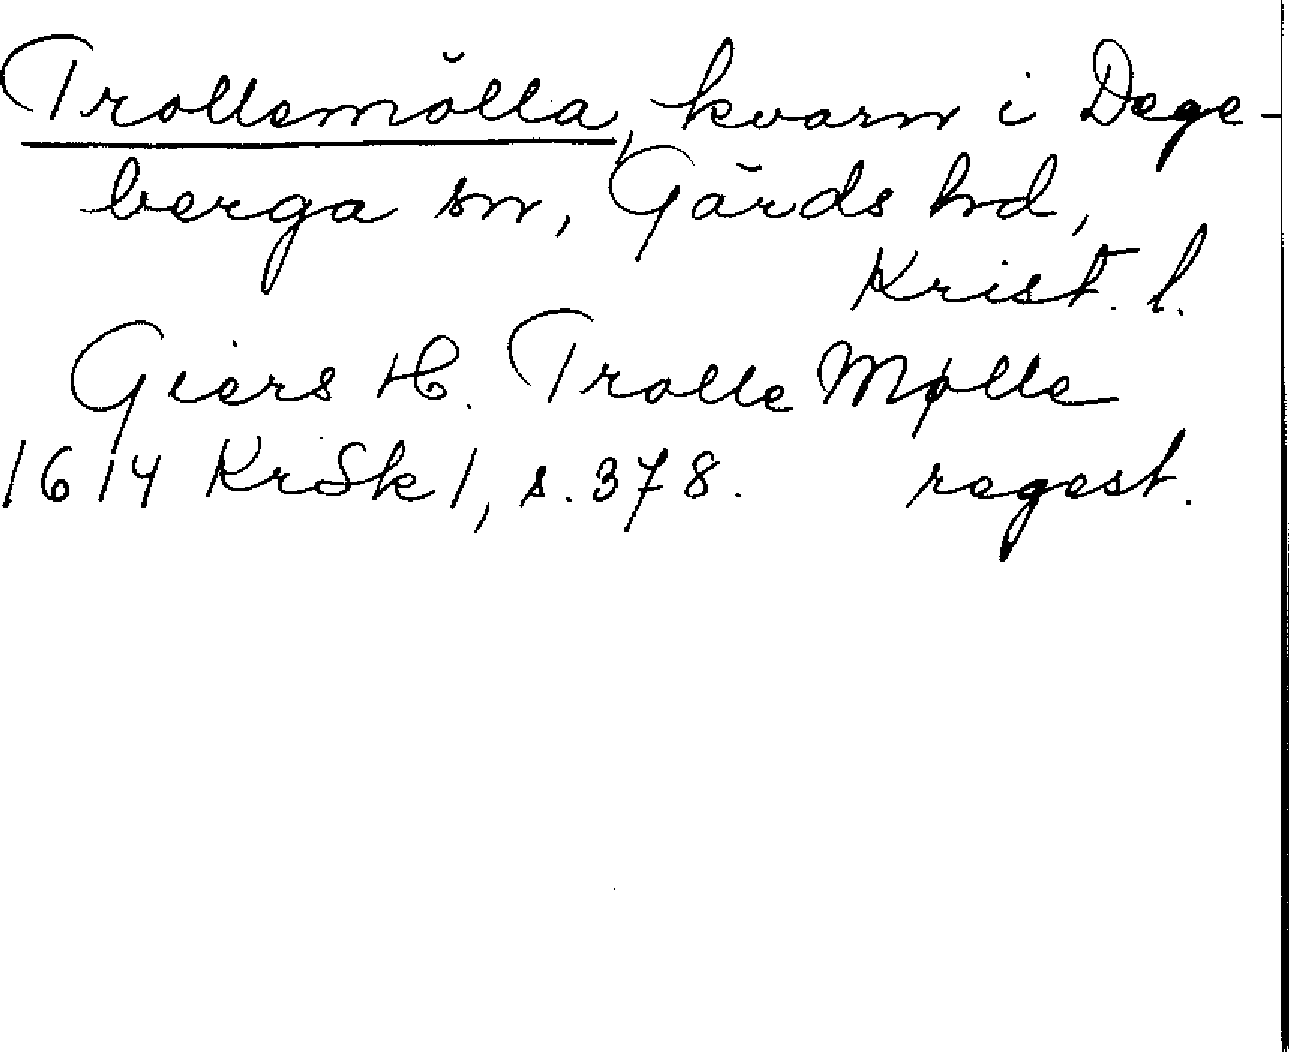 Trollemölla, kvarn i Dege-
berga sn, Gärds hd,
Krist. l.
Giers H. Trolle Mølle
1614 KrSk 1, s. 378. regest.